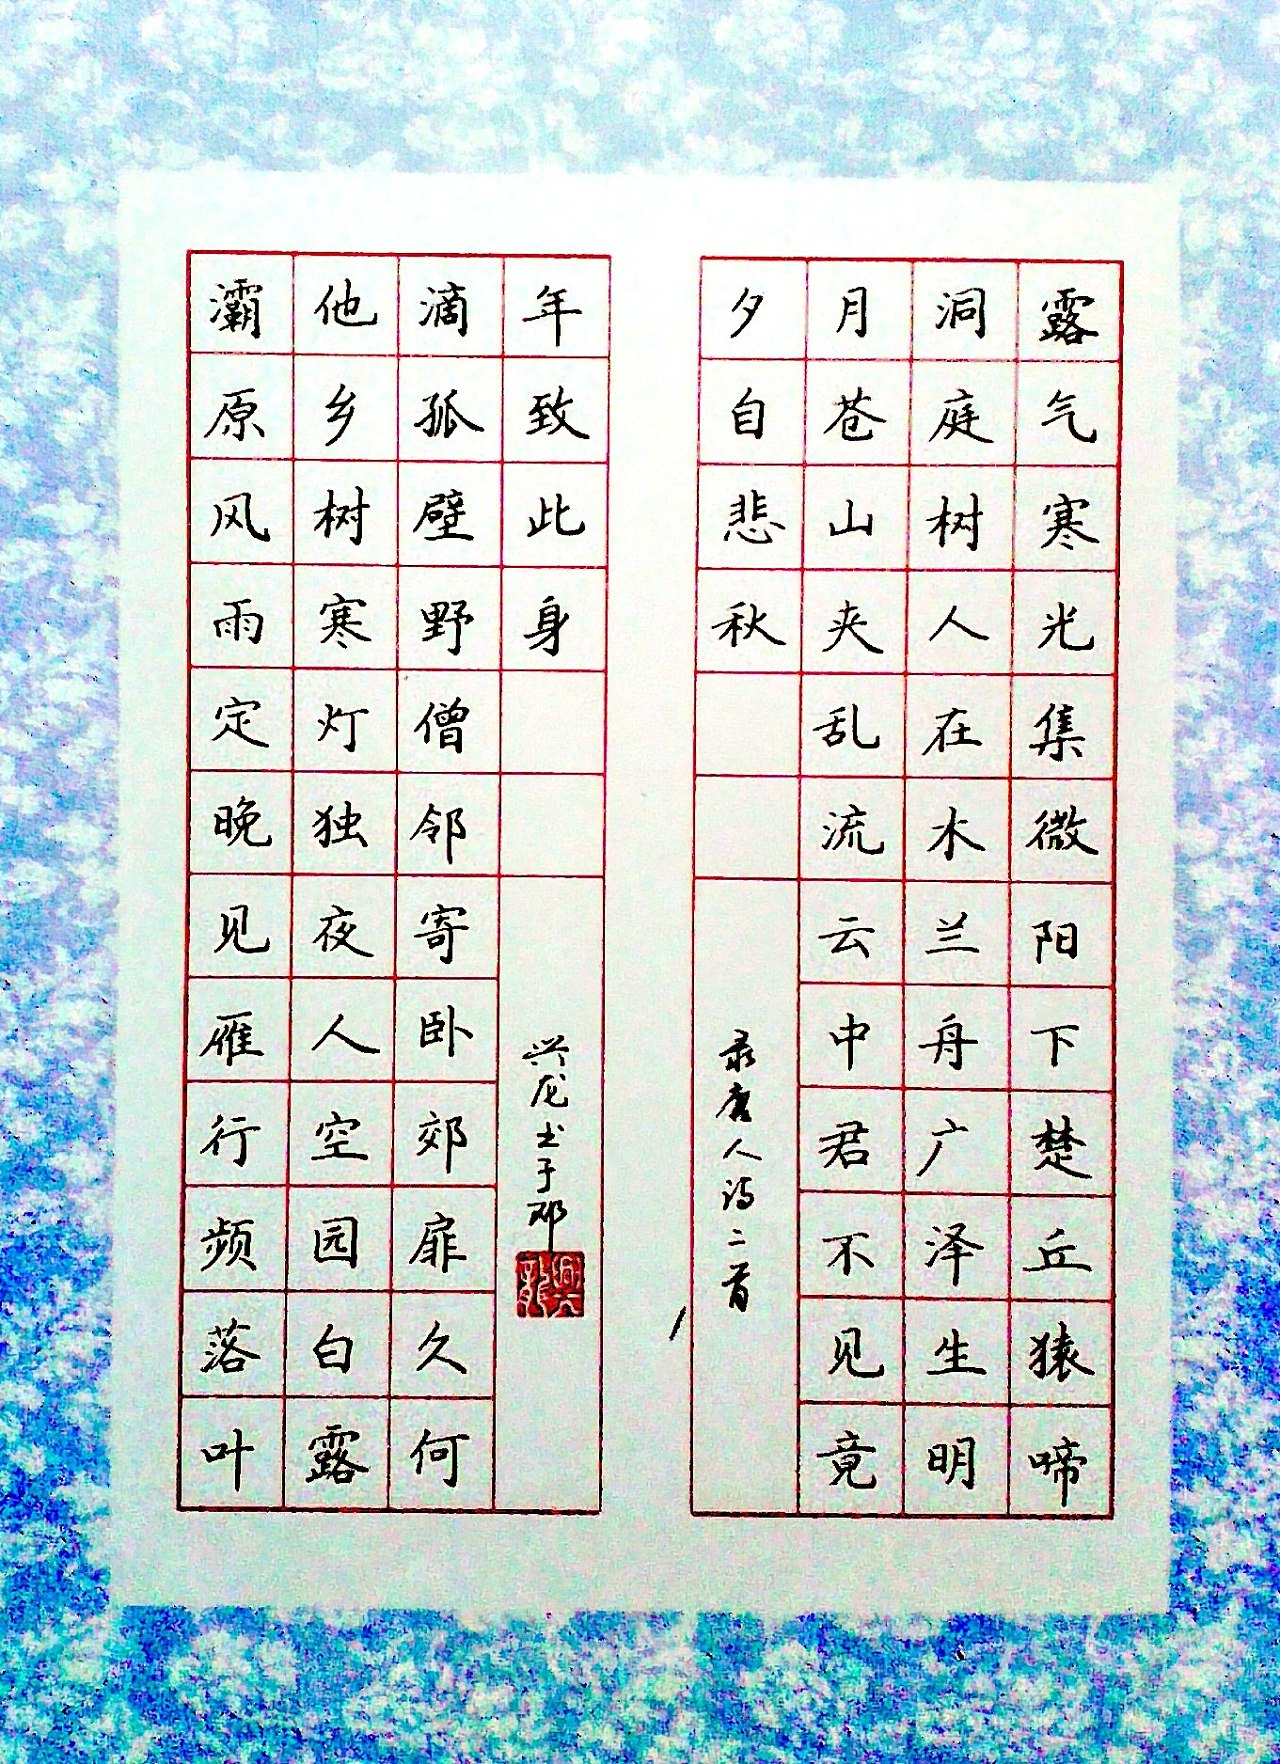 露气寒光集微阳下楚丘猿啼
洞庭树人在木兰舟广泽生明
月苍山夹乱流云中君不见竟
夕自悲秋
录唐人诗二首
灞原风雨定晚见雁行频落叶
他乡树寒灯独夜人空园白露
滴孤壁野僧邻寄卧郊扉久何
年致此身
兴龙书于邓
興龍